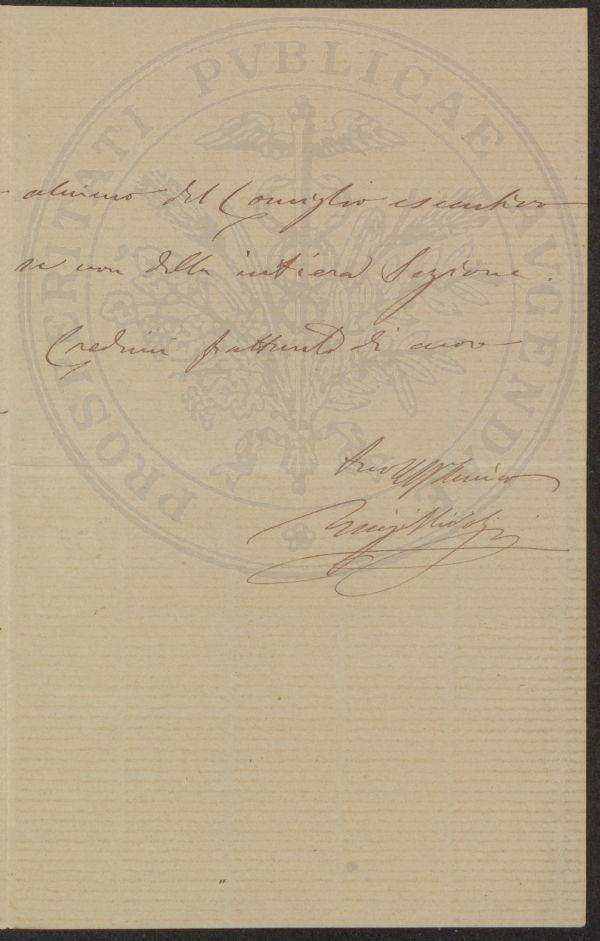 PROSPERITATI PVBLICAE AVGENDAE
almeno del Consiglio esecutivo
se non della intiera Sezione.
Credimi frattanto di cuore
tuo Aff Amico
Luigi